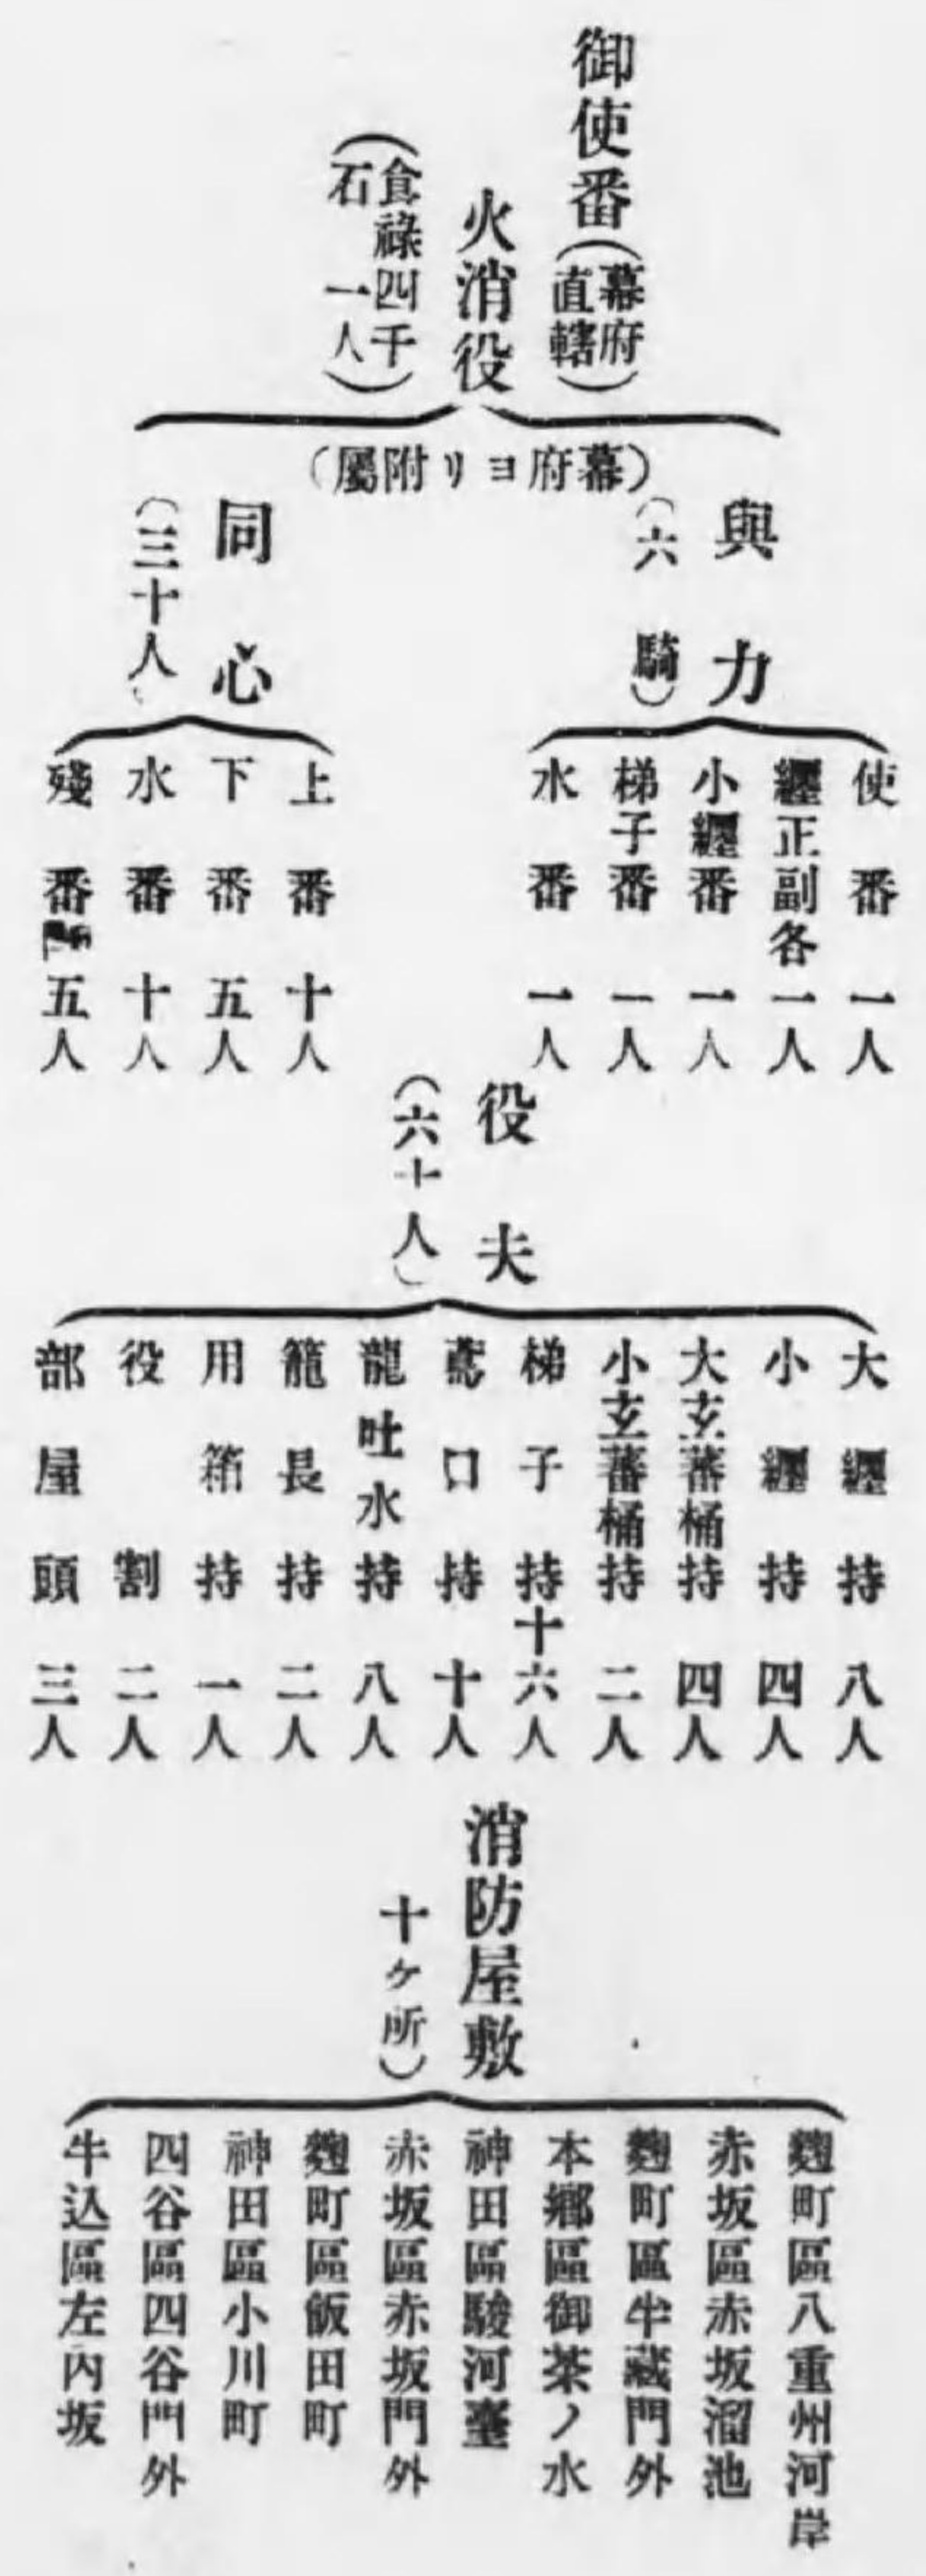 御使番(幕府直轄)
火消役
(食祿四千石 一人)
(幕府ヨリ附屬)
與力
(六騎)
使番 一人
纒正副各一人
小纒番 一人
梯子番 一人
水番 一人
同心
(三十人)
上番 十人
下番 五人
水番 十人
殘番 五人
役夫
(六十人)
大纒持 八人
小纒持 四人
大玄蕃桶持 四人
小玄蕃桶持 二人
梯子持十六人
鳶口持 十人
龍吐水持 八人
籠長持 二人
用箱持 一人
役割 二人
部屋頭 三人
消防屋敷
十ケ所)
麴町區八重州河岸
赤坂區赤坂溜池
麴町區半藏門外
本鄕區御茶ノ水
神田區駿河臺
赤坂區赤坂門外
麴町區飯田町
神田區小川町
四谷區四谷門外
牛込區左內坂